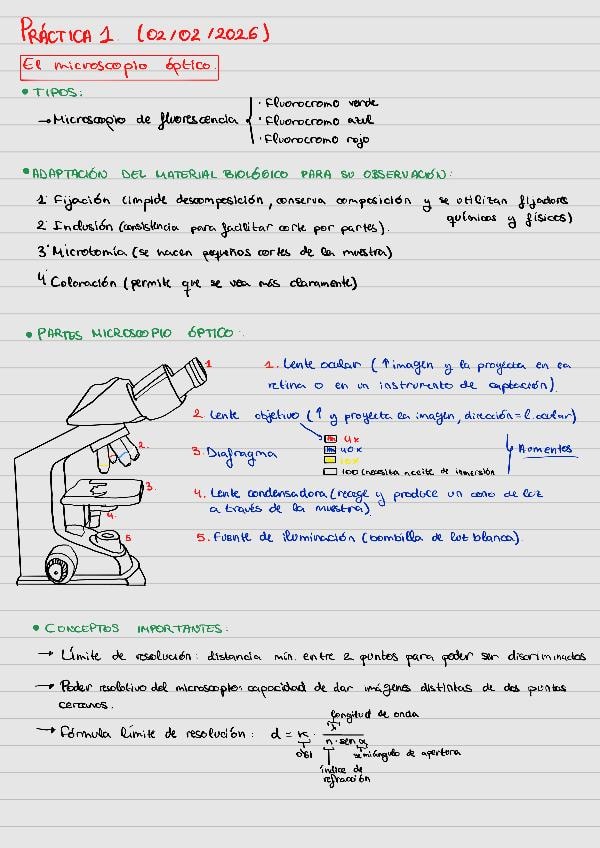 PRÁCTICA 1 (02/02/2026)
El microscopio óptico.
• TIPOS:
→ Microscopio de fluorescencia
· Fluorocromo verde
· Fluorocromo azul
· Fluorocromo rojo
• ADAPTACIÓN DEL MATERIAL BIOLÓGICO PARA SU OBSERVACIÓN:
1º Fijación (impide descomposición, conserva composición y se utilizan fijadores
químicos y físicos)
2º Inclusión (consistencia para facilitar corte por partes).
3º Microtomía (se hacen pequeños cortes de la muestra)
4º Coloración (permite que se vea más claramente)
• PARTES MICROSCOPIO ÓPTICO:
1
2.
3.
4.
5
1. Lente ocular (↑ imagen y la proyecta en la
retina o en un instrumento de captación).
2. Lente objetivo (↑ y proyecta la imagen, dirección = l. ocular)
4x
40x
10x
100 (necesita aceite de inmersión
↳ Aumentos
3. Diafragma
4. Lente condensadora (recoge y produce un cono de luz
a través de la muestra).
5. Fuente de iluminación (bombilla de luz blanca).
• CONCEPTOS IMPORTANTES:
→ Límite de resolución: distancia mín. entre 2 puntos para poder ser discriminados
→ Poder resolutivo del microscopio: capacidad de dar imágenes distintas de dos puntos
cercanos.
longitud de onda
→ Fórmula límite de resolución: d = K · λ / n · sen α
0'61
semiángulo de apertura
índice de
refracción